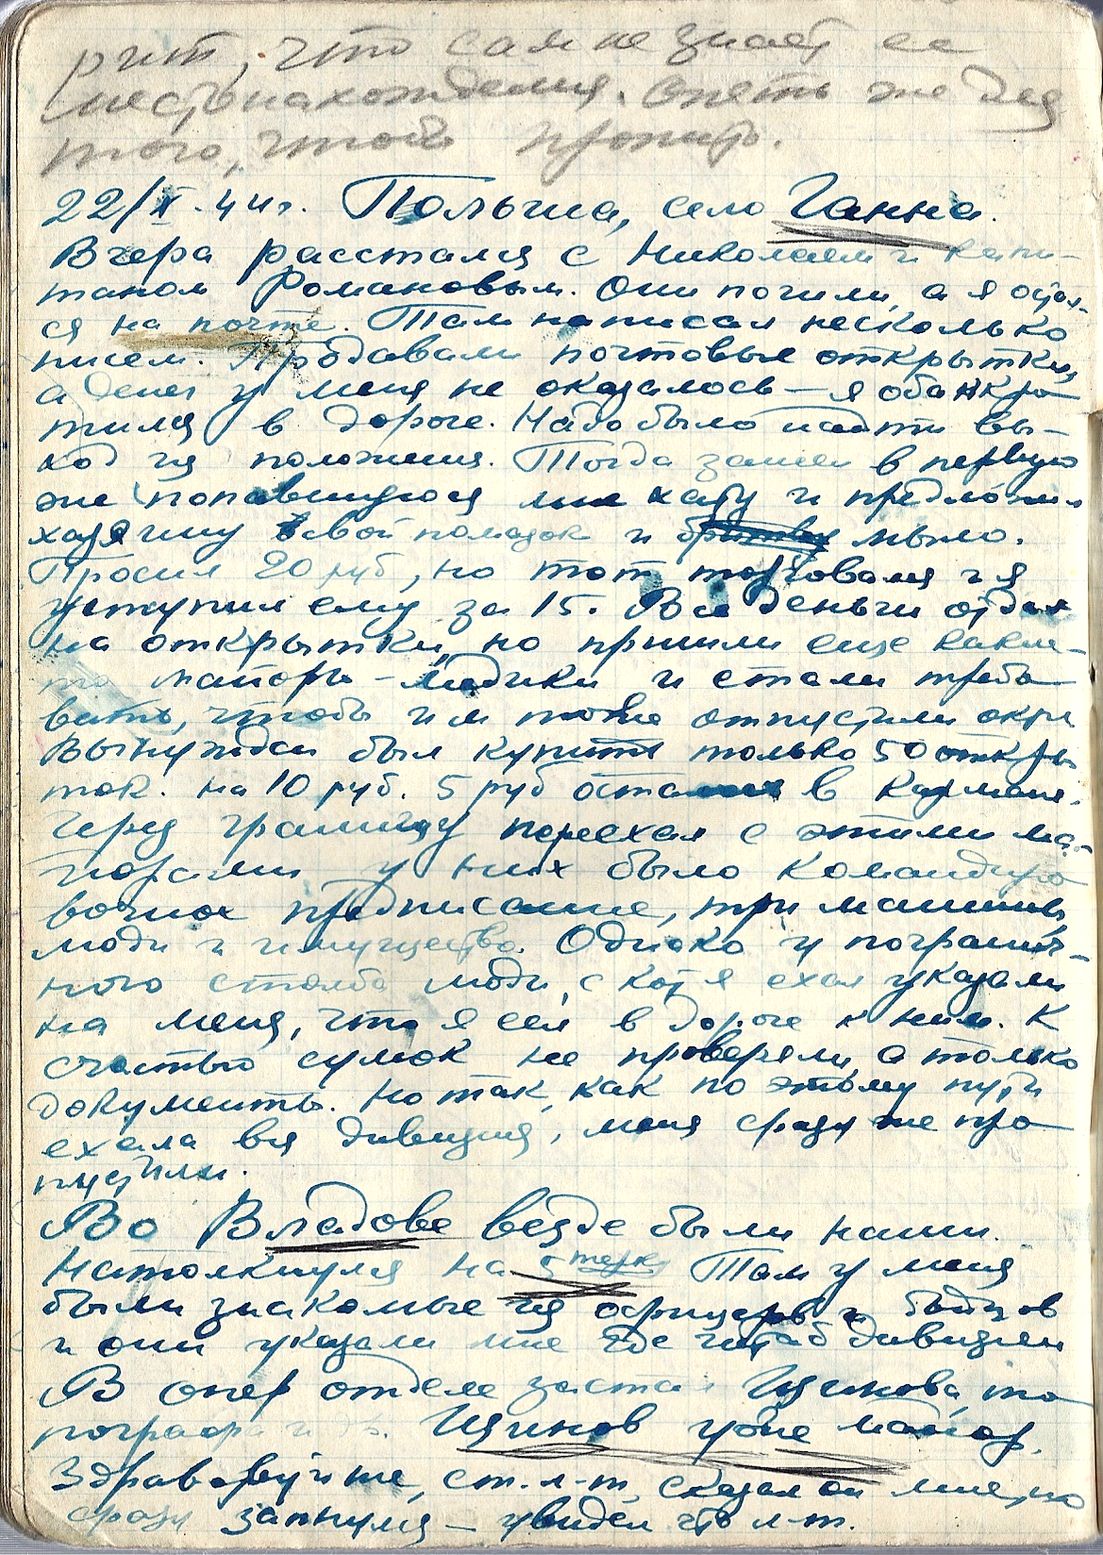 рит, что сам не знает ее
местонахождения. Опять же для
того, чтоб
22/X-44г. Польша, село Ганна.
Вчера расстался с Николаем и капи-
таном Романовым. Они пошли, а я остал-
ся на почте. Там написал несколько
писем. Продавали почтовые открытки,
а денег у меня не оказалось — я обанкро
тился в дороге. Надо было найти вы-
ход из положения. Тогда зашел в первую
же попавшуюся мне хату и предложил
хозяину свой помазок и мыло.
Просил 20 руб, но тот торговался и я
уступил ему за 15. Все деньги отдал
на открытки, но пришли еще какие-
то майоры-медики и стали требо
вать, чтобы им тоже отпустили откр.
Вынужден был купить только 50 откры
ток. на 10 руб. 5 руб остались в кармане.
Через границу переехал с этими ма-
иорами у них было командиро
вочное предписание, три машины,
люди и имущество. Однако у погранич-
ного столба люди, с кот я ехал указали
на меня, что я сел в дороге к ним. К
счастью сумок не проверяли, а только
документы. Но так, как по этому пути
ехала вся дивизия, меня сразу же про
пустили.
Во Владове везде были наши.
Натолкнулся на 5 Там у меня
были знакомые из офицеров и бойцов
и они указали мне где штаб дивизии
В опер отделе застал Щинова, то
пографа и др. Щинов уже майор.
Здравствуйте, ст. л-т, сказал он мне, но
сразу запнулся — увидел что л-т.